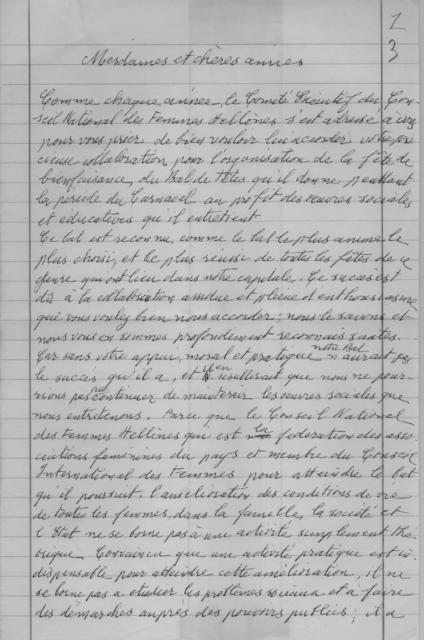 1
3
Mesdames et chères amies
Comme chaque année, le Comité Exécutif du Con-
seil National des Femmes Hellènes s'est adressé à vous
pour vous prier de bien vouloir lui accorder votre pré
cieuse collaboration pour l'organisation de la fête de
bienfaisance, du Bal de Têtes qu'il donne pendant
la période du Carnaval au profit des œuvres sociales
et éducatives qu'il entretient
Ce bal est reconnu comme le bal le plus animé le
plus choisi, et le plus réussi de toutes les fêtes de ce
genre qui ont lieu dans notre capitale. Ce succès est
dû à la collaboration assidue et pleine d'enthousiasme
que vous voulez bien nous accorder; nous le savons et
nous vous en sommes profondement reconnaissantes.
Car sans votre appui, moral et pratique notre Bal n'aurait pas
le succès qu'il a, et il en resulterait que nous ne pour-
rions pas continuer de maintenir les œuvres sociales que
nous entretenons. Parce que le Conseil National
des Femmes Hellènes qui est la federation des asso-
ciations féminines du pays et membre du Conseil
International des Femmes pour atteindre le but
qu'il poursuit, l'amélioration des conditions de vie
de toutes les femmes, dans la famille, la société et
l'État ne se borne pas à une activité simplement thé
orique. Convaincu que une activité pratique est in-
dispensable pour atteindre cette amélioration, il ne
se borne pas a etudier les problèmes sociaux et à faire
des démarches auprès des pouvoirs publics; il a